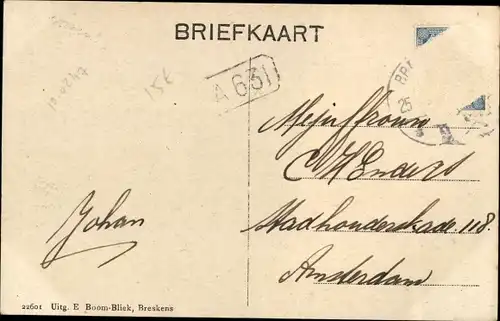 BRIEFKAART
15€
A 631
25
Mejuffrouw
Enders
Stadhouderskade 118.
Amsterdam
Johan
22601 Uitg. E Boom-Bliek, Breskens